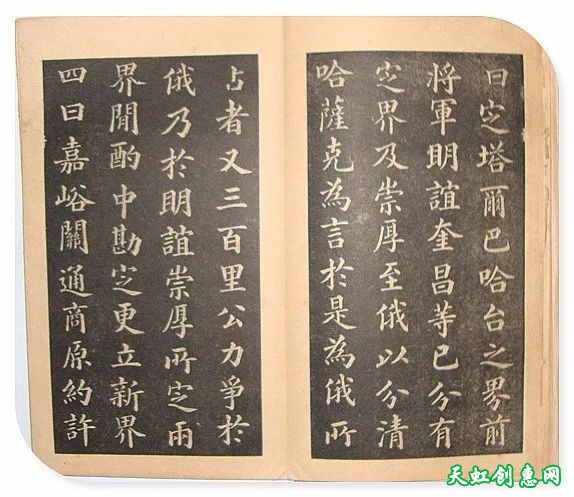 曰定塔爾巴哈台之界前
將軍明誼奎昌等已分有
定界及崇厚至俄以分清
哈薩克為言於是為俄所
占者又三百里公力爭於
俄乃於明誼崇厚所定兩
界閒酌中勘定更立新界
四曰嘉峪關通商原約許
天虹创意网